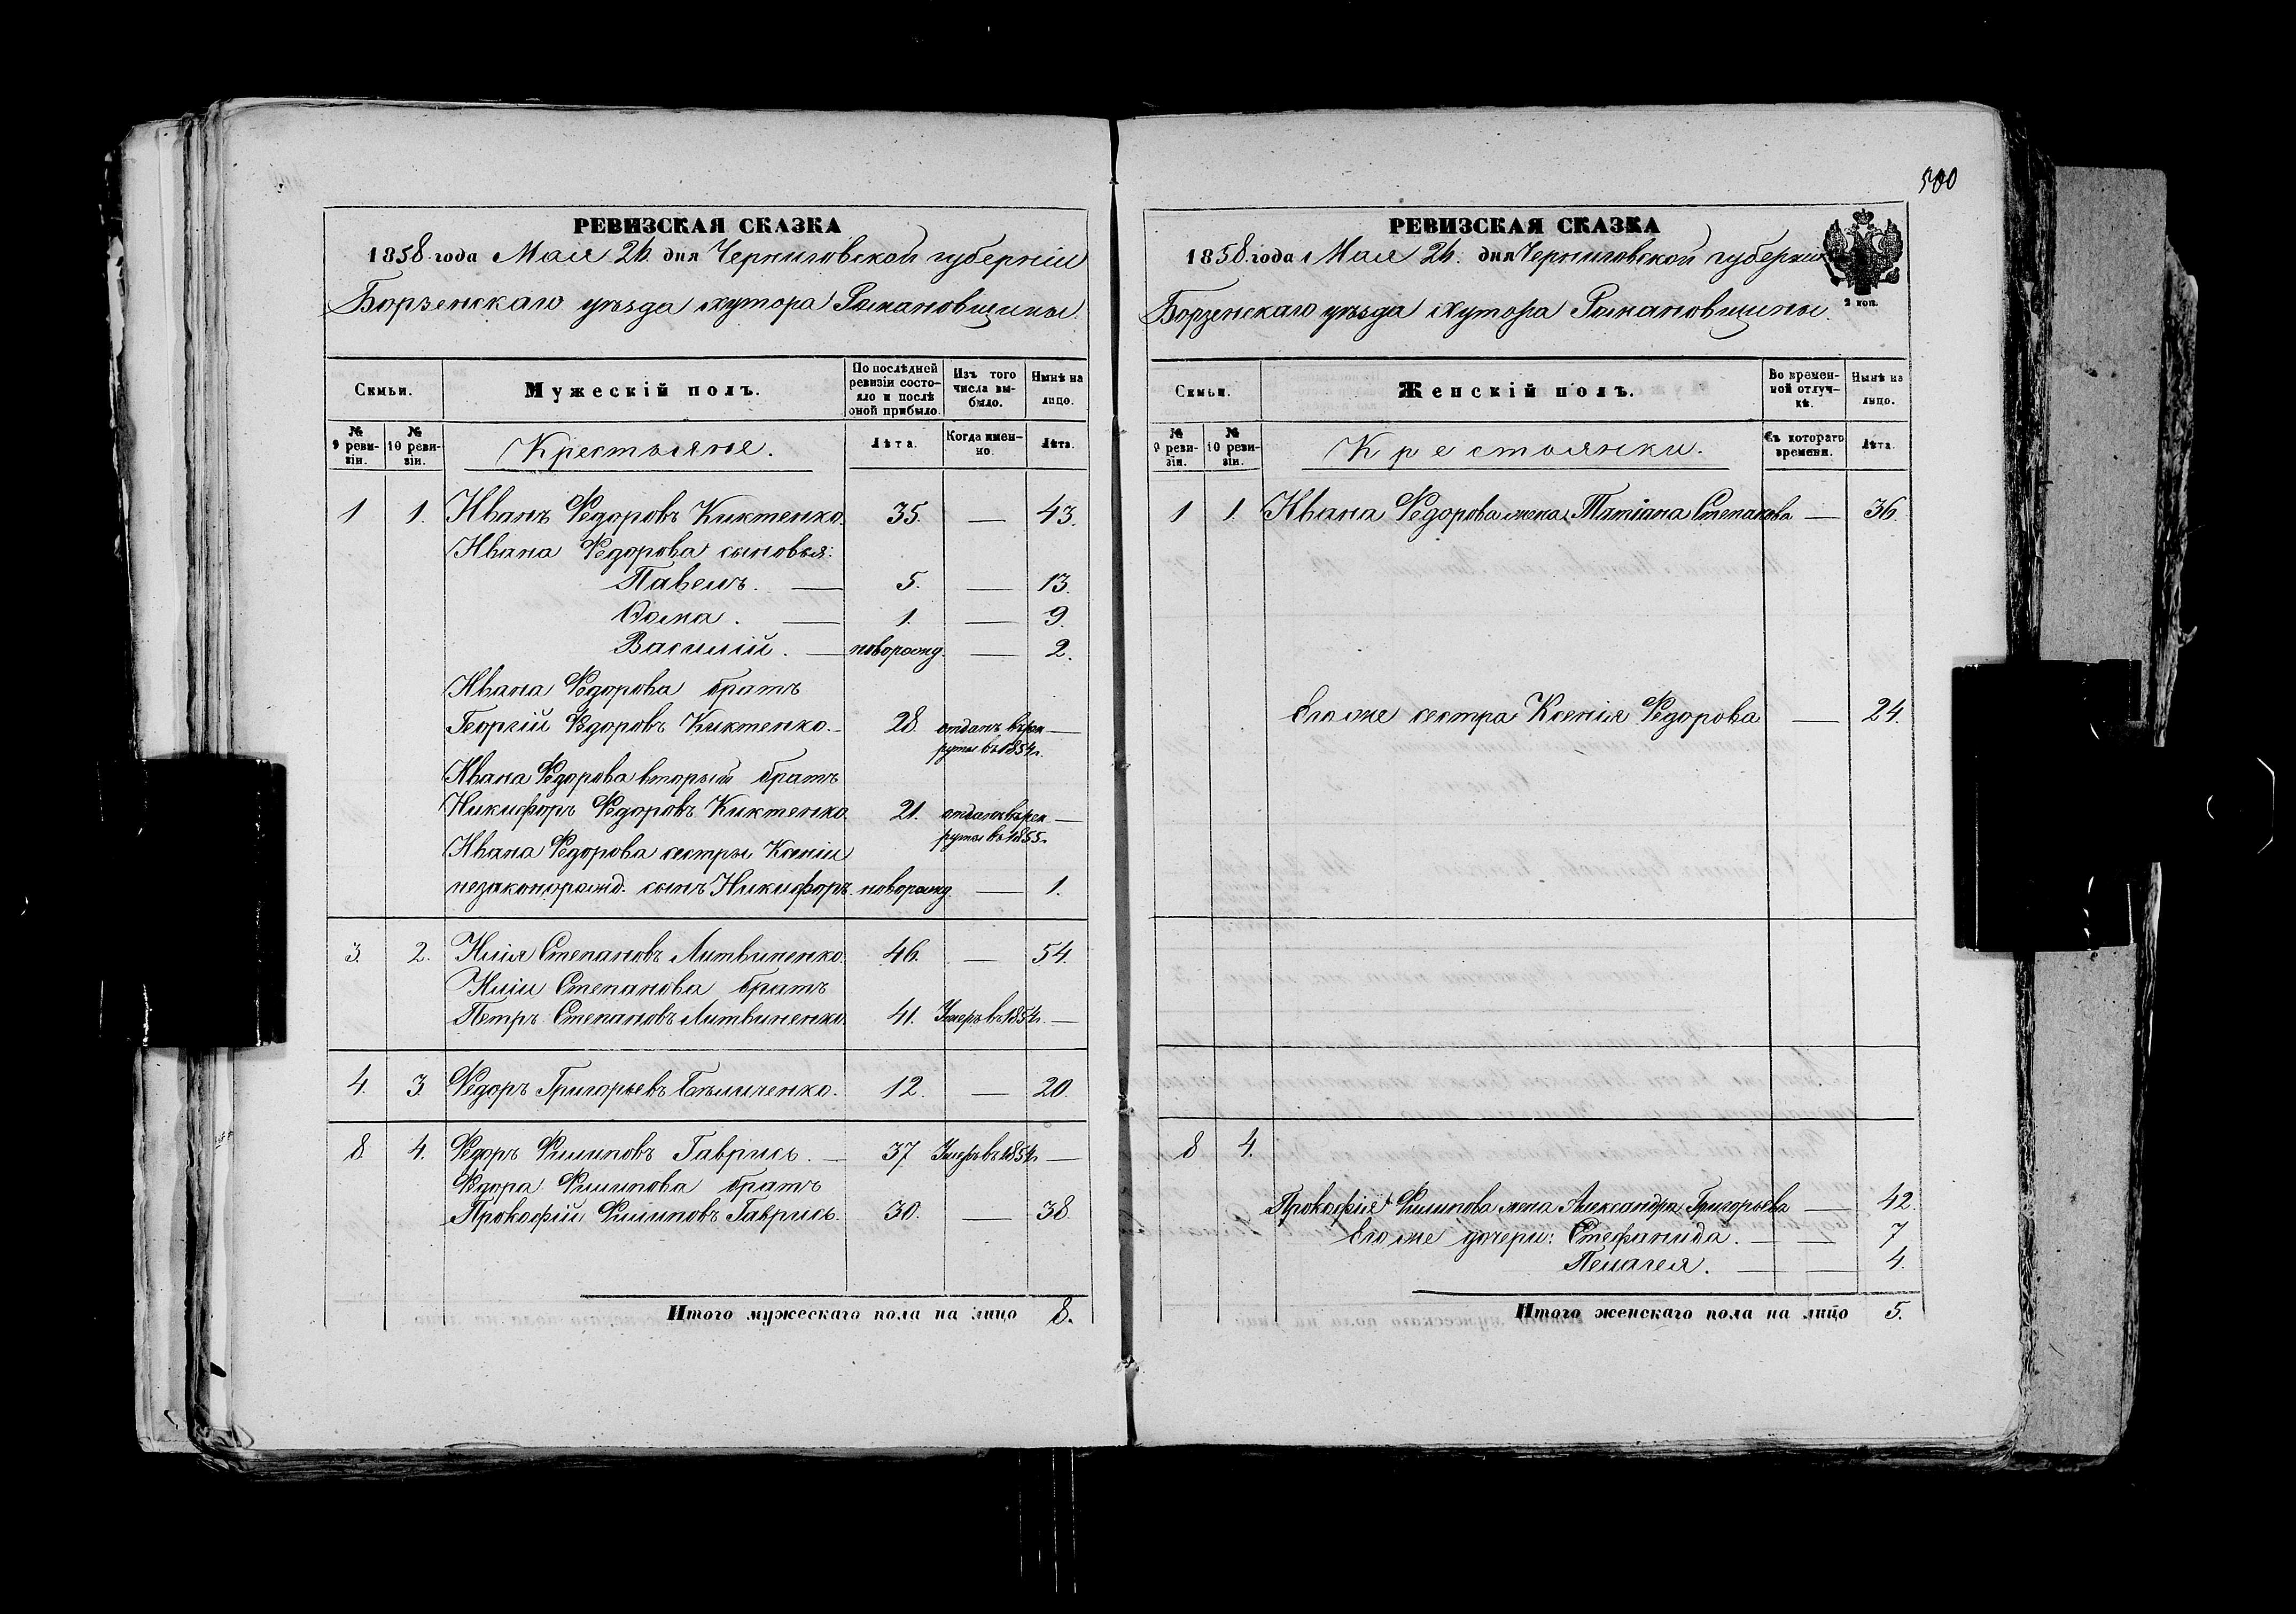 500
РЕВИЗСКАЯ СКАЗКА
1858 года Мая 26 дня Черниговской губерніи
Борзенскаго уѣзда хутора Романовщины.
Семьи.
Мужескій полъ.
По послѣдней ревизіи состояло и послѣ оной прибыло.
Изъ того числа выбыло.
Нынѣ на лицо.
№ 9 ревизіи.
№ 10 ревизіи.
Крестьяне.
Лѣта.
Когда именно.
Лѣта.
1 1. Иванъ Ѳедоровъ Киктенко. 35. — 43.
Ивана Ѳедорова сыновья:
Павелъ. — 5. — 13.
Ѳома. — 1. — 9.
Василій. — новорожд. — 2.
Ивана Ѳедорова братъ
Георгій Ѳедоровъ Киктенко. 28. отданъ въ рек— —
руты въ 1854г.
Ивана Ѳедорова вторый братъ
Никифоръ Ѳедоровъ Киктенко. 21. отданъ въ рек— —
руты въ 1855г.
Ивана Ѳедорова сестры Ксеніи
незаконорожд. сынъ Никифоръ. новорожд. — 1.
3. 2. Илія Степановъ Литвиненко. 46. — 54.
Иліи Степанова братъ
Петръ Степановъ Литвиненко. 41. Умеръ въ 1854г. —
4. 3. Ѳедоръ Григорьевъ Бѣличенко. 12. — 20.
8. 4. Ѳедоръ Филиповъ Гаврись. — 37 Умеръ въ 1854г. —
Ѳедора Филипова братъ
Прокофій Филиповъ Гаврись. 30. — 38.
Итого мужескаго пола на лицо 8.
РЕВИЗСКАЯ СКАЗКА
1858 года Мая 26. дня Черниговской губерніи
2 коп.
Борзенскаго уѣзда хутора Романовщины.
Семьи.
Женскій полъ.
Во временной отлучкѣ.
Нынѣ на лицо.
№ 9 ревизіи.
№ 10 ревизіи.
Крестьянки.
Съ котораго времени.
Лѣта.
1 1. Ивана Ѳедорова жена Татіана Степанова — 36.
Его же сестра Ксенія Ѳедорова — 24.
8 4.
Прокофія Филипова жена Александра Григорьева — 42.
Его же дочери: Стефанида. — — 7
Пелагея. — — 4.
Итого женскаго пола на лицо 5.